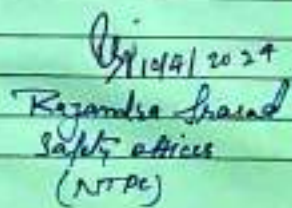 10/4/2024
Rajendra Prasad
Safety officer
(NTPC)